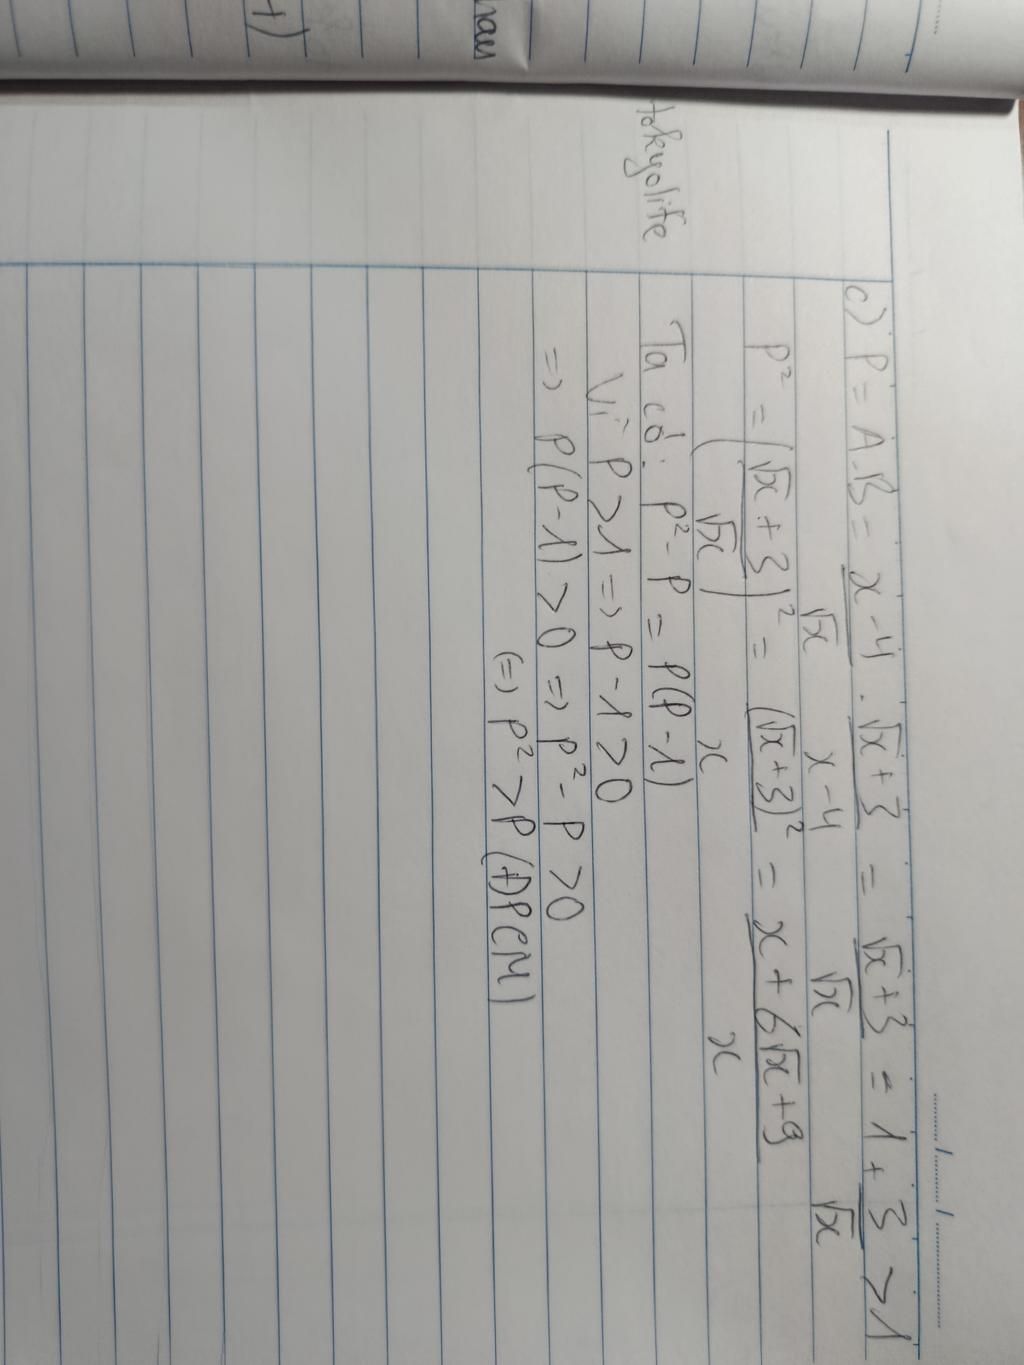 c) P = A.B = x - 4 / √x . √x + 3 / x - 4 = √x + 3 / √x = 1 + 3 / √x > 1
P² = (√x + 3 / √x)² = (√x + 3)² / x = x + 6√x + 9 / x
Ta có: P² - P = P(P - 1)
Vì P > 1 => P - 1 > 0
=> P(P - 1) > 0 => P² - P > 0
(=) P² > P (ĐPCM)
tokyolife